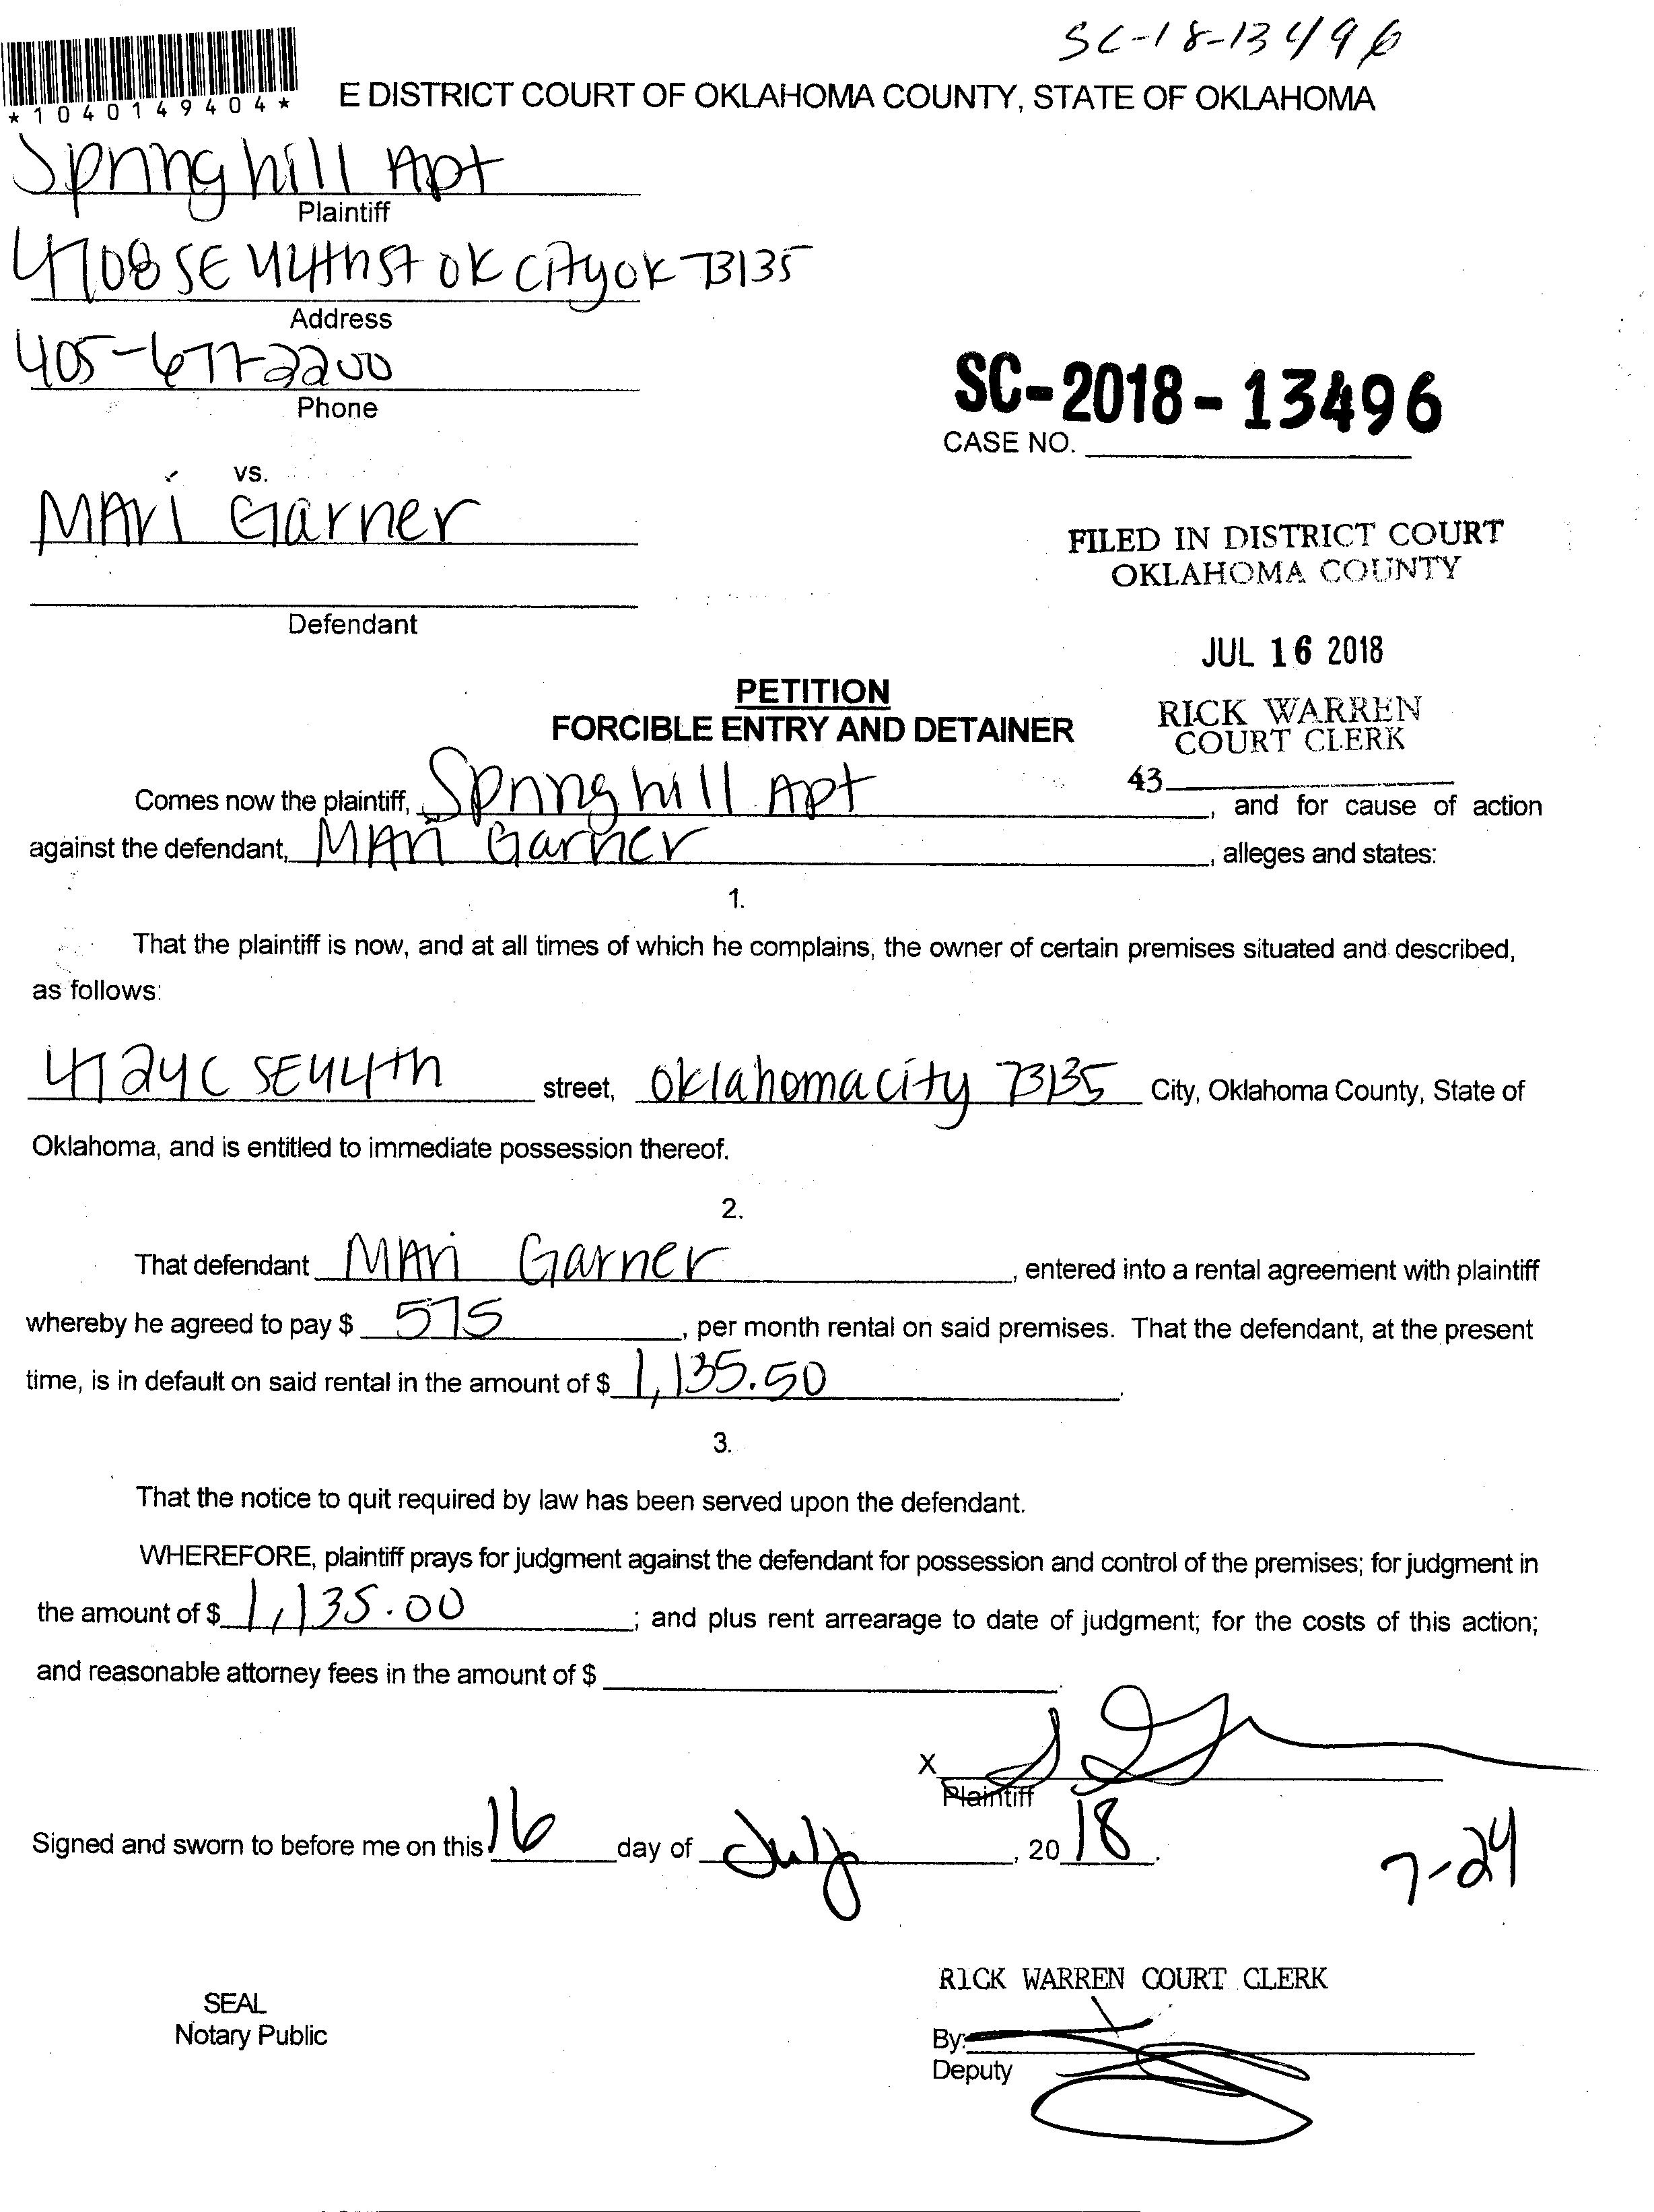 SC-18-13496
*1040149404*
E DISTRICT COURT OF OKLAHOMA COUNTY, STATE OF OKLAHOMA
Springhill Apt
Plaintiff
4708 SE 44th St OK City OK 73135
Address
405-677-2200
Phone
SC-2018-13496
CASE NO.
vs.
MAri Garner
FILED IN DISTRICT COURT
OKLAHOMA COUNTY
Defendant
JUL 16 2018
PETITION
RICK WARREN
FORCIBLE ENTRY AND DETAINER
COURT CLERK
43
Comes now the plaintiff, Springhill Apt, and for cause of action
against the defendant, MAri Garner, alleges and states:
1.
That the plaintiff is now, and at all times of which he complains, the owner of certain premises situated and described,
as follows:
4724C SE 44th street, Oklahoma city 73135 City, Oklahoma County, State of
Oklahoma, and is entitled to immediate possession thereof.
2.
That defendant MAri Garner, entered into a rental agreement with plaintiff
whereby he agreed to pay $ 575, per month rental on said premises. That the defendant, at the present
time, is in default on said rental in the amount of $ 1,135.50.
3.
That the notice to quit required by law has been served upon the defendant.
WHEREFORE, plaintiff prays for judgment against the defendant for possession and control of the premises; for judgment in
the amount of $ 1,135.00; and plus rent arrearage to date of judgment; for the costs of this action;
and reasonable attorney fees in the amount of $ .
X
Plaintiff
Signed and sworn to before me on this 16 day of July, 20 18.
7-24
RICK WARREN COURT CLERK
SEAL
Notary Public
By:
Deputy